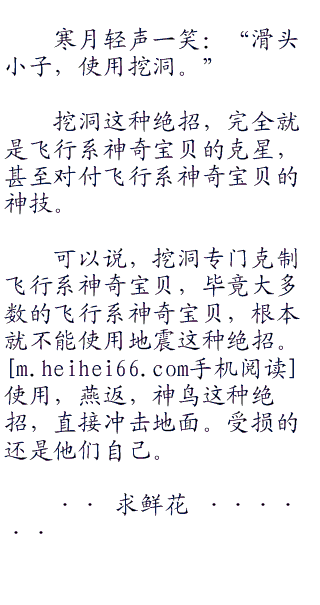 寒月轻声一笑：“滑头
小子，使用挖洞。”
挖洞这种绝招，完全就
是飞行系神奇宝贝的克星，
甚至对付飞行系神奇宝贝的
神技。
可以说，挖洞专门克制
飞行系神奇宝贝，毕竟大多
数的飞行系神奇宝贝，根本
就不能使用地震这种绝招。
[m.heihei66.com手机阅读]
使用，燕返，神鸟这种绝
招，直接冲击地面。受损的
还是他们自己。
·· 求鲜花 ····
··